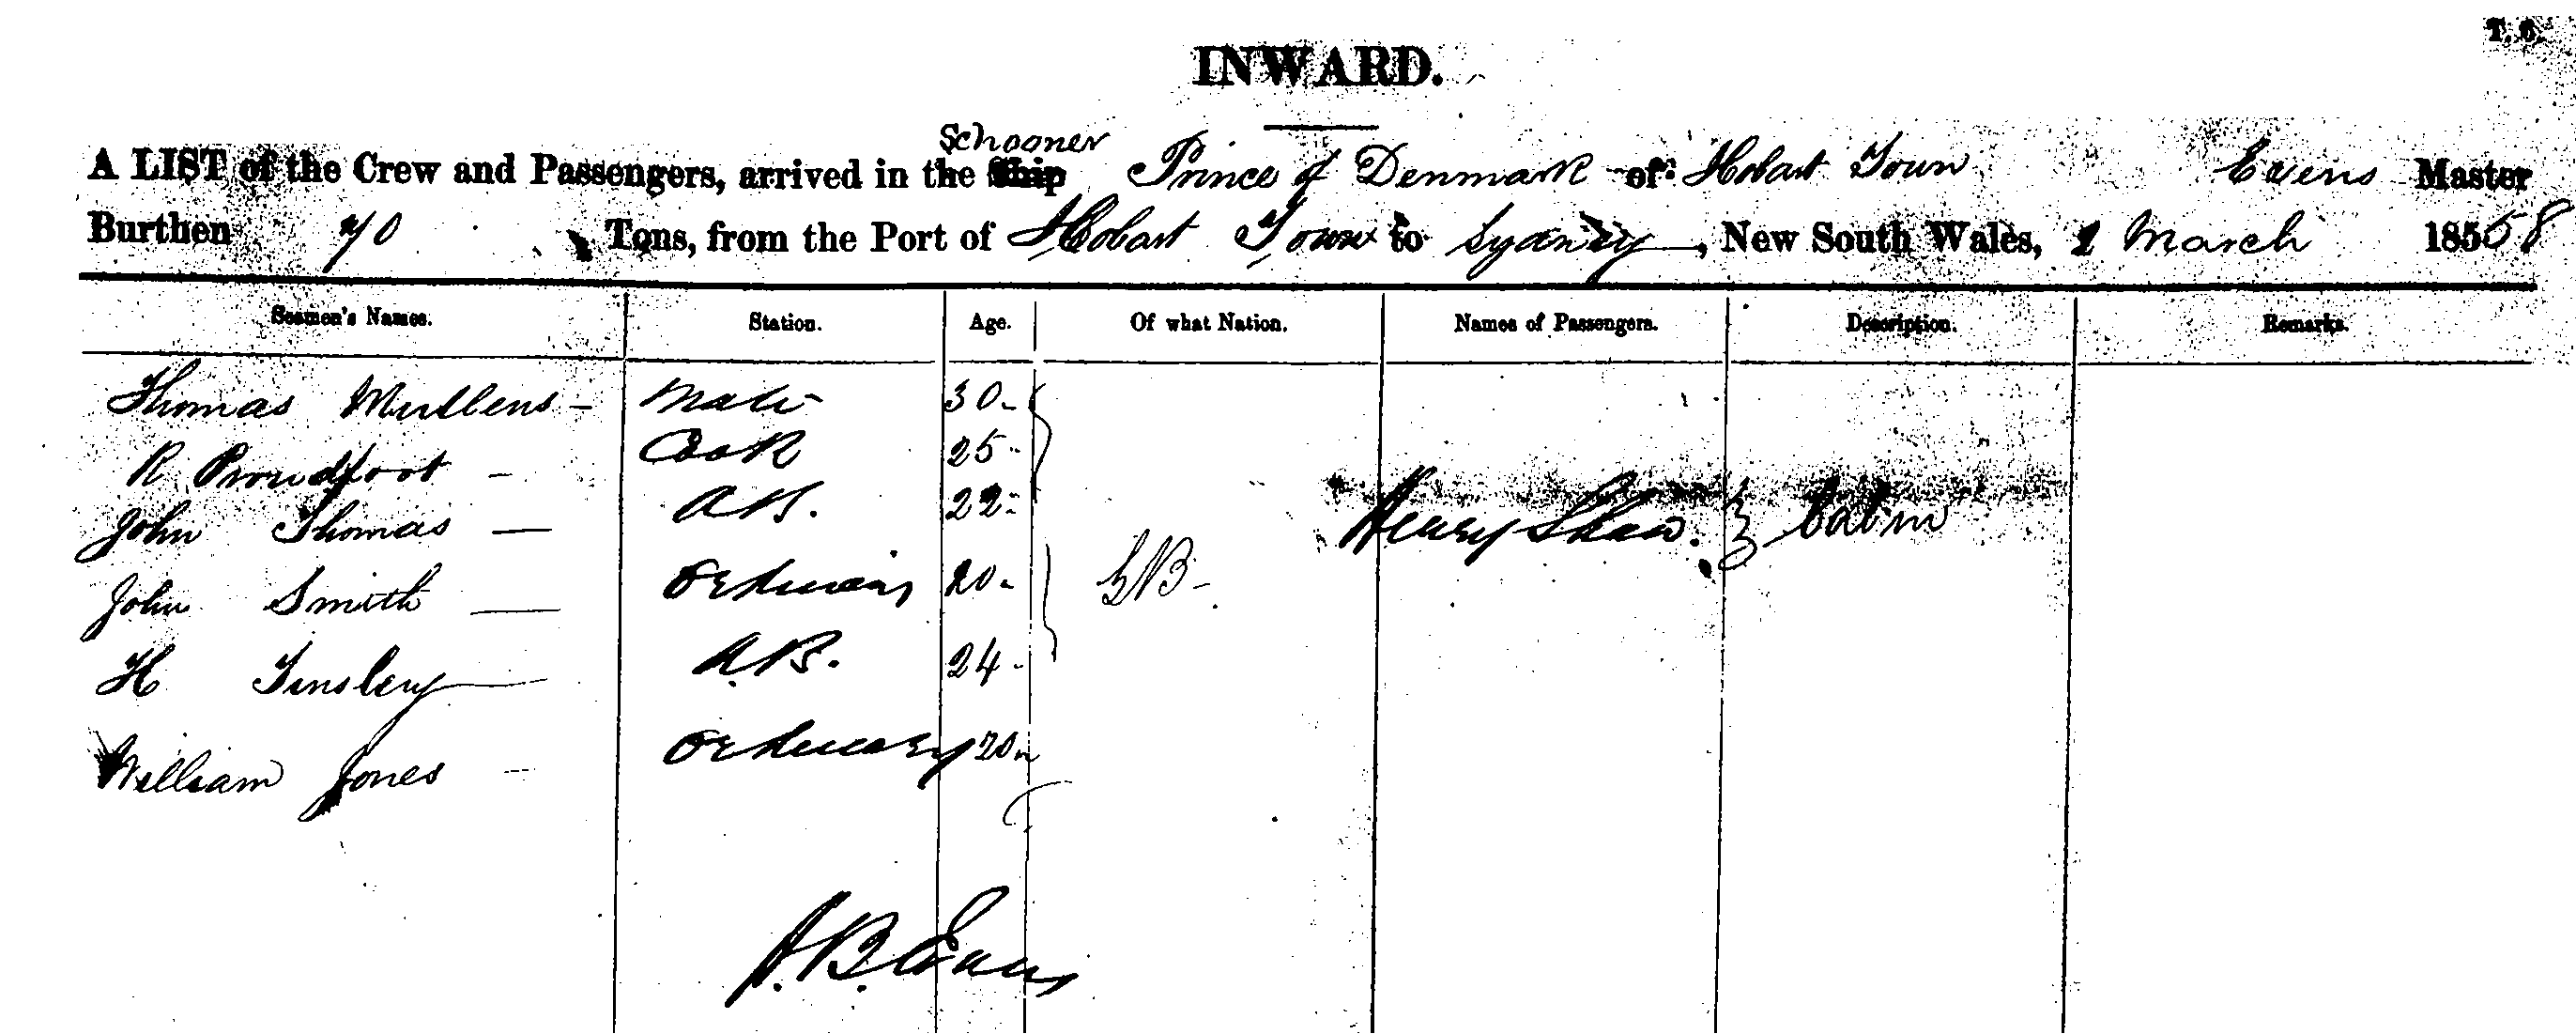 T. 6.
INWARD.
Schooner
A LIST of the Crew and Passengers, arrived in the Ship Prince of Denmark of Hobart Town Evens Master
Burthen 70 Tons, from the Port of Hobart Town to Sydney, New South Wales, 1 March 18558
Seamen's Names. Station. Age. Of what Nation. Names of Passengers. Description. Remarks.
Thomas Mullens - Mate 30 -
R Proudfoot - Cook 25 -
John Thomas — A.B. 22 - Henry Shaw. } Cabin
John Smith — Ordinary 20 - GB -
H Tinsley — A.B. 24 -
William Jones - Ordinary 20
J. B. Evans